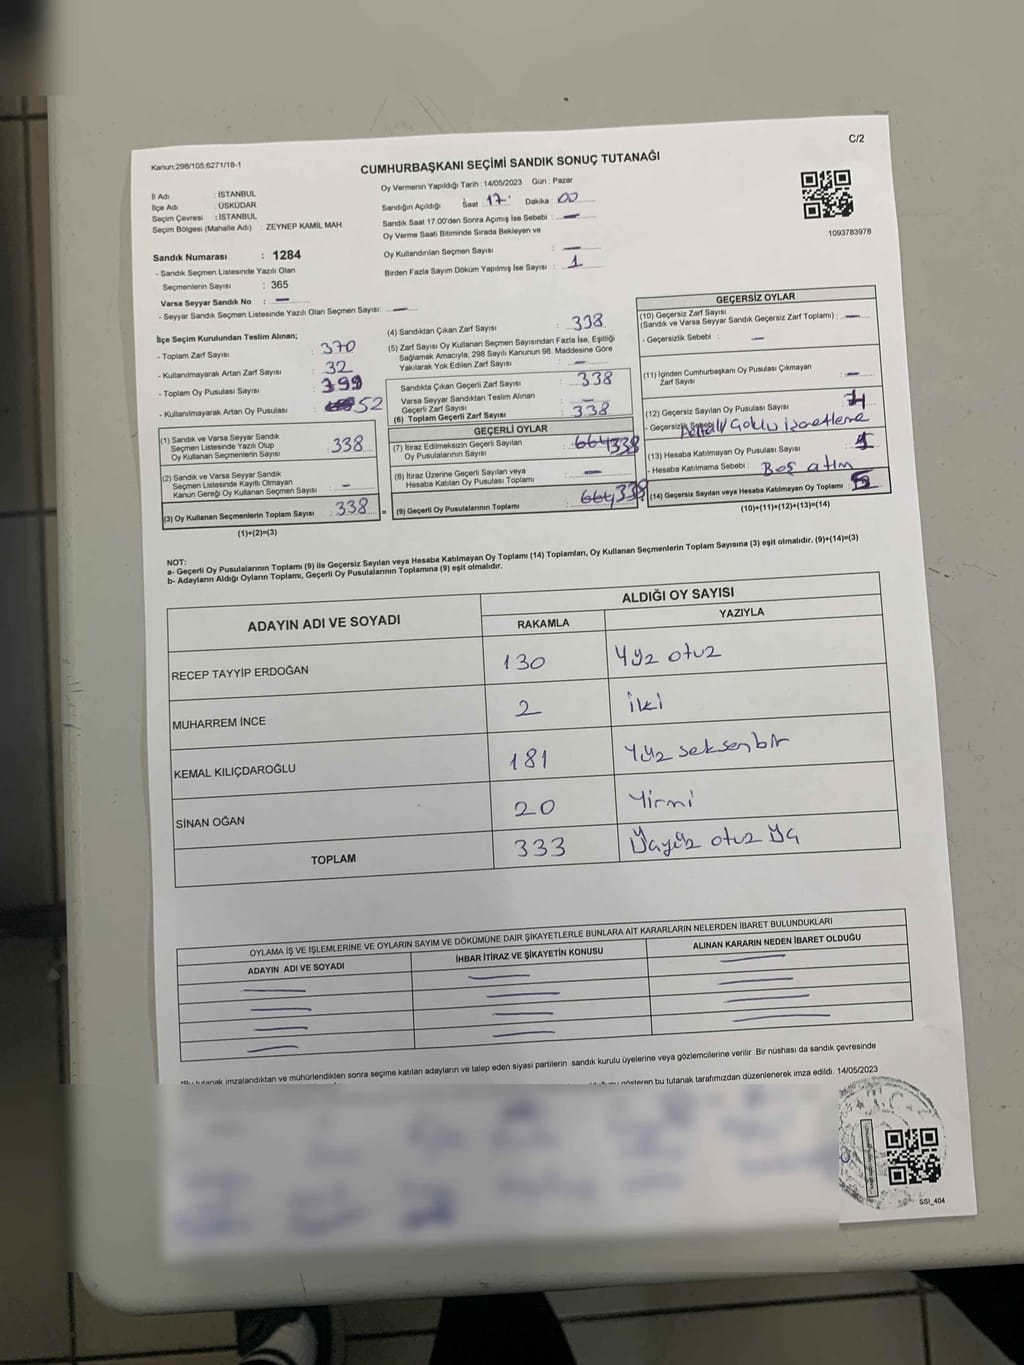 C/2
Kanun:298/105;6271/18-1
CUMHURBAŞKANI SEÇİMİ SANDIK SONUÇ TUTANAĞI
İl Adı : İSTANBUL
İlçe Adı : ÜSKÜDAR
Seçim Çevresi : İSTANBUL
Seçim Bölgesi (Mahalle Adı) : ZEYNEP KAMİL MAH.
Sandık Numarası : 1284
- Sandık Seçmen Listesinde Yazılı Olan
Seçmenlerin Sayısı : 365
Varsa Seyyar Sandık No : —
- Seyyar Sandık Seçmen Listesinde Yazılı Olan Seçmen Sayısı: —
Oy Vermenin Yapıldığı Tarih :14/05/2023 Gün : Pazar
Sandığın Açıldığı Saat 17 Dakika 00
Sandık Saat 17.00'den Sonra Açımış İse Sebebi : —
Oy Verme Saati Bitiminde Sırada Bekleyen ve
Oy Kullandırılan Seçmen Sayısı : —
Birden Fazla Sayım Döküm Yapılmış İse Sayısı : 1
1093783978
İlçe Seçim Kurulundan Teslim Alınan;
- Toplam Zarf Sayısı : 370
- Kullanılmayarak Artan Zarf Sayısı : 32
- Toplam Oy Pusulası Sayısı : 399
- Kullanılmayarak Artan Oy Pusulası : 52
(1) Sandık ve Varsa Seyyar Sandık
Seçmen Listesinde Yazılı Olup
Oy Kullanan Seçmenlerin Sayısı : 338
(2) Sandık ve Varsa Seyyar Sandık
Seçmen Listesinde Kayıtlı Olmayan
Kanun Gereği Oy Kullanan Seçmen Sayısı : —
(3) Oy Kullanan Seçmenlerin Toplam Sayısı : 338 =
(1)+(2)=(3)
(4) Sandıktan Çıkan Zarf Sayısı : 338
(5) Zarf Sayısı Oy Kullanan Seçmen Sayısından Fazla İse, Eşitliği
Sağlamak Amacıyla; 298 Sayılı Kanunun 98. Maddesine Göre
Yakılarak Yok Edilen Zarf Sayısı : —
Sandıkta Çıkan Geçerli Zarf Sayısı : 338
Varsa Seyyar Sandıktan Teslim Alınan
Geçerli Zarf Sayısı : —
(6) Toplam Geçerli Zarf Sayısı : 338
GEÇERLİ OYLAR
(7) İtiraz Edilmeksizin Geçerli Sayılan
Oy Pusulalarının Sayısı : 664 338
(8) İtiraz Üzerine Geçerli Sayılan veya
Hesaba Katılan Oy Pusulası Toplamı : —
(9) Geçerli Oy Pusulalarının Toplamı : 664, 338
GEÇERSİZ OYLAR
(10) Geçersiz Zarf Sayısı
(Sandık ve Varsa Seyyar Sandık Geçersiz Zarf Toplamı) : —
- Geçersizlik Sebebi : —
(11) İçinden Cumhurbaşkanı Oy Pusulası Çıkmayan
Zarf Sayısı : —
(12) Geçersiz Sayılan Oy Pusulası Sayısı :
- Geçersizlik Sebebi: işaretleme
(13) Hesaba Katılmayan Oy Pusulası Sayısı : 1
- Hesaba Katılmama Sebebi : Boş atım
(14) Geçersiz Sayılan veya Hesaba Katılmayan Oy Toplamı : 5
(10)+(11)+(12)+(13)=(14)
NOT:
a- Geçerli Oy Pusulalarının Toplamı (9) ile Geçersiz Sayılan veya Hesaba Katılmayan Oy Toplamı (14) Toplamları, Oy Kullanan Seçmenlerin Toplam Sayısına (3) eşit olmalıdır. (9)+(14)=(3)
b- Adayların Aldığı Oyların Toplamı, Geçerli Oy Pusulalarının Toplamına (9) eşit olmalıdır.
ADAYIN ADI VE SOYADI ALDIĞI OY SAYISI
RAKAMLA YAZIYLA
RECEP TAYYİP ERDOĞAN 130 Yüz otuz
MUHARREM İNCE 2 iki
KEMAL KILIÇDAROĞLU 181 Yüz seksenbir
SİNAN OĞAN 20 Yirmi
TOPLAM 333 Üçyüz otuz üç
OYLAMA İŞ VE İŞLEMLERİNE VE OYLARIN SAYIM VE DÖKÜMÜNE DAİR ŞİKAYETLERLE BUNLARA AİT KARARLARIN NELERDEN İBARET BULUNDUKLARI
ADAYIN ADI VE SOYADI İHBAR İTİRAZ VE ŞİKAYETİN KONUSU ALINAN KARARIN NEDEN İBARET OLDUĞU
tutanak imzalandıktan ve mühürlendikten sonra seçime katılan adayların ve talep eden siyasi partilerin sandık kurulu üyelerine veya gözlemcilerine verilir. Bir nüshası da sandık çevresinde
gösteren bu tutanak tarafımızdan düzenlenerek imza edildi. 14/05/2023
SSI_404